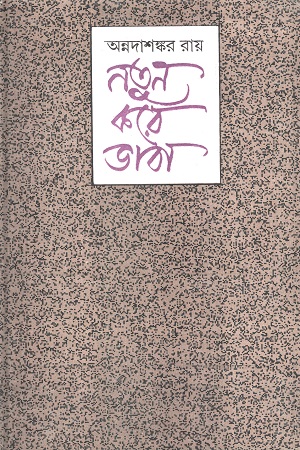 অন্নদাশঙ্কর রায়
নতুন
করে
ভাবা